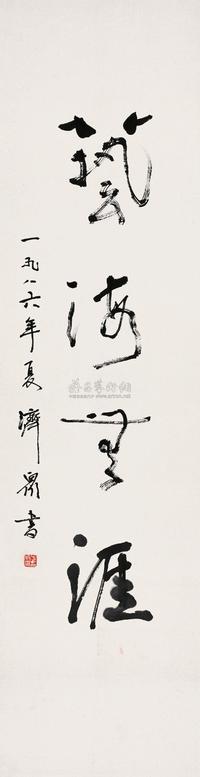 藝海無涯
一九八六年夏濟眾書